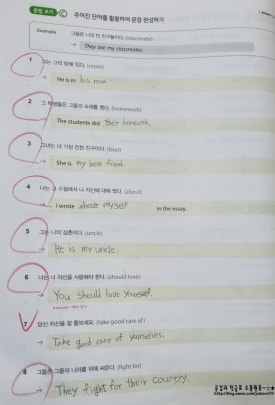 문법 쓰기 C 주어진 단어를 활용하여 문장 완성하기
Example 그들은 나의 반 친구들이다. (classmate)
→ They are my classmates.
1 그는 그의 방에 있다. (room)
→ He is in his room.
2 그 학생들은 그들의 숙제를 했다. (homework)
→ The students did their homework.
3 그녀는 내 가장 친한 친구이다. (best)
→ She is my best friend.
4 나는 그 수필에서 나 자신에 대해 썼다. (about)
→ I wrote about myself in the essay.
5 그는 나의 삼촌이다. (uncle)
→ He is my uncle.
6 너는 너 자신을 사랑해야 한다. (should love)
→ You should love yourself.
7 당신 자신을 잘 돌보세요. (take good care of)
→ Take good care of yourselves.
8 그들은 그들의 나라를 위해 싸운다. (fight for)
→ They fight for their country.